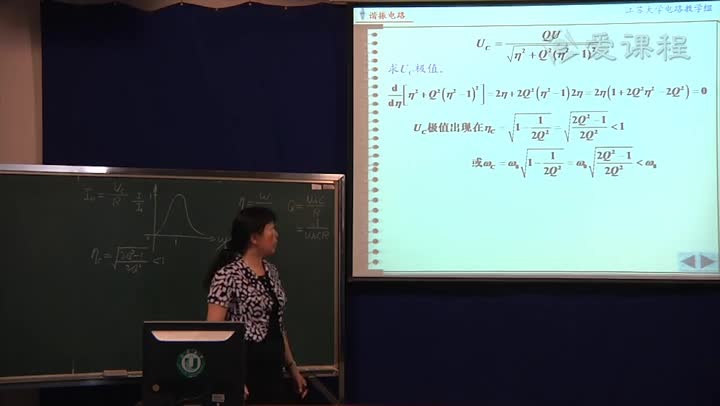 谐振电路
江苏大学电路教学组
爱课程
U_C = QU / √(η² + Q²(η² − 1)²)
求U_C极值。
d/dη [η² + Q²(η² − 1)²] = 2η + 2Q²(η² − 1)2η = 2η(1 + 2Q²η² − 2Q²) = 0
U_C极值出现在η_C = √(1 − 1/(2Q²)) = √((2Q² − 1)/(2Q²)) < 1
或ω_C = ω₀√(1 − 1/(2Q²)) = ω₀√((2Q² − 1)/(2Q²)) < ω₀
I₀ = U_s/R
I/I₀
1
η = ω/
Q = ω₀L/R
= 1/(ω₀CR)
0
1
η_C = √((2Q²−1)/(2Q²)) < 1